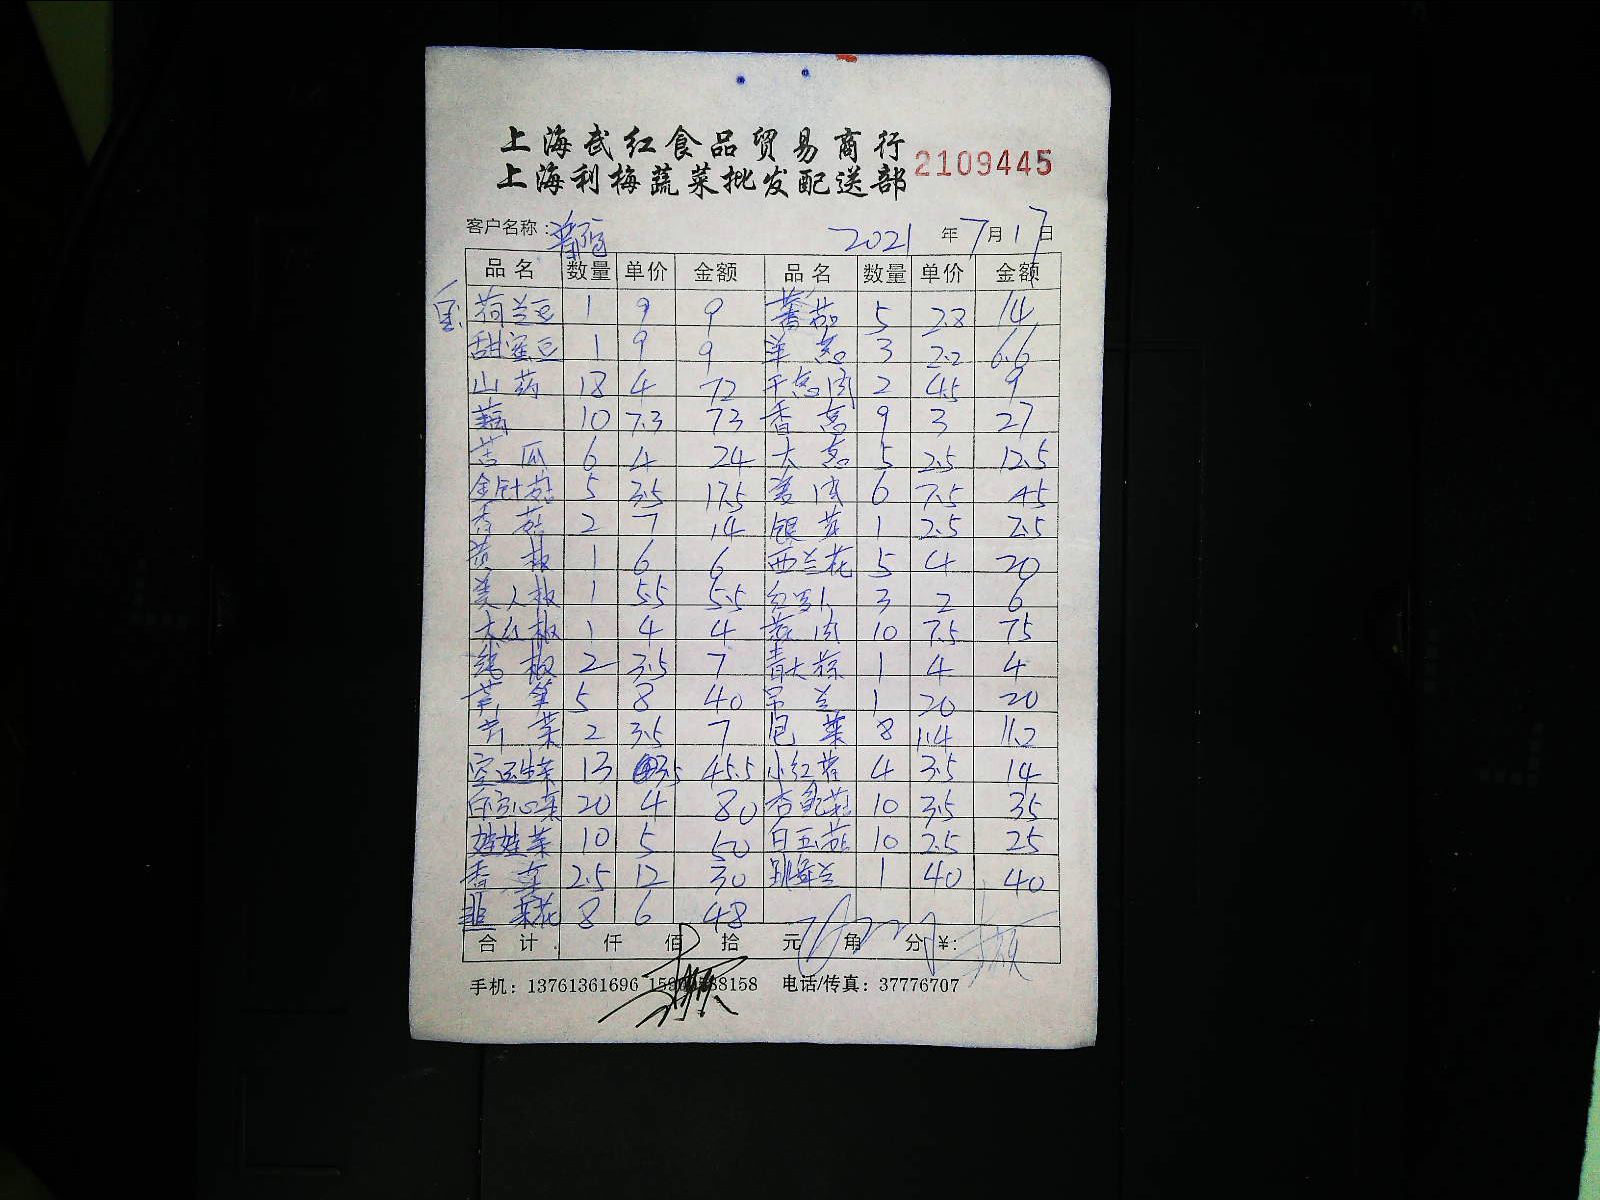 上海武红食品贸易商行
上海利梅蔬菜批发配送部 2109445
客户名称： 2021年7月17日
品名 数量 单价 金额 品名 数量 单价 金额
荷兰豆 1 9 9 蕃茄 5 2.8 14
甜蜜豆 1 9 9 洋葱 3 2.2 6.6
山药 18 4 72 干葱肉 2 4.5 9
藕 10 7.3 73 香葱 9 3 27
苦瓜 6 4 24 大葱 5 2.5 12.5
金针菇 5 3.5 17.5 姜肉 6 7.5 45
香菇 2 7 14 银芽 1 2.5 2.5
黄椒 1 6 6 西兰花 5 4 20
美人椒 1 5.5 5.5 3 2 6
大红椒 1 4 4 蒜肉 10 7.5 75
线椒 2 3.5 7 青大蒜 1 4 4
芦笋 5 8 40 吊兰 1 20 20
芹菜 2 3.5 7 包菜 8 1.4 11.2
空运生菜 13 3.5 45.5 小红椒 4 3.5 14
白空心菜 20 4 80 杏鲍菇 10 3.5 35
娃娃菜 10 5 50 白玉菇 10 2.5 25
香菜 2.5 12 30 蝴蝶兰 1 40 40
韭菜花 8 6 48
合计 仟 佰 拾 元 角 分 ¥:
手机：13761361696 8158 电话/传真：37776707